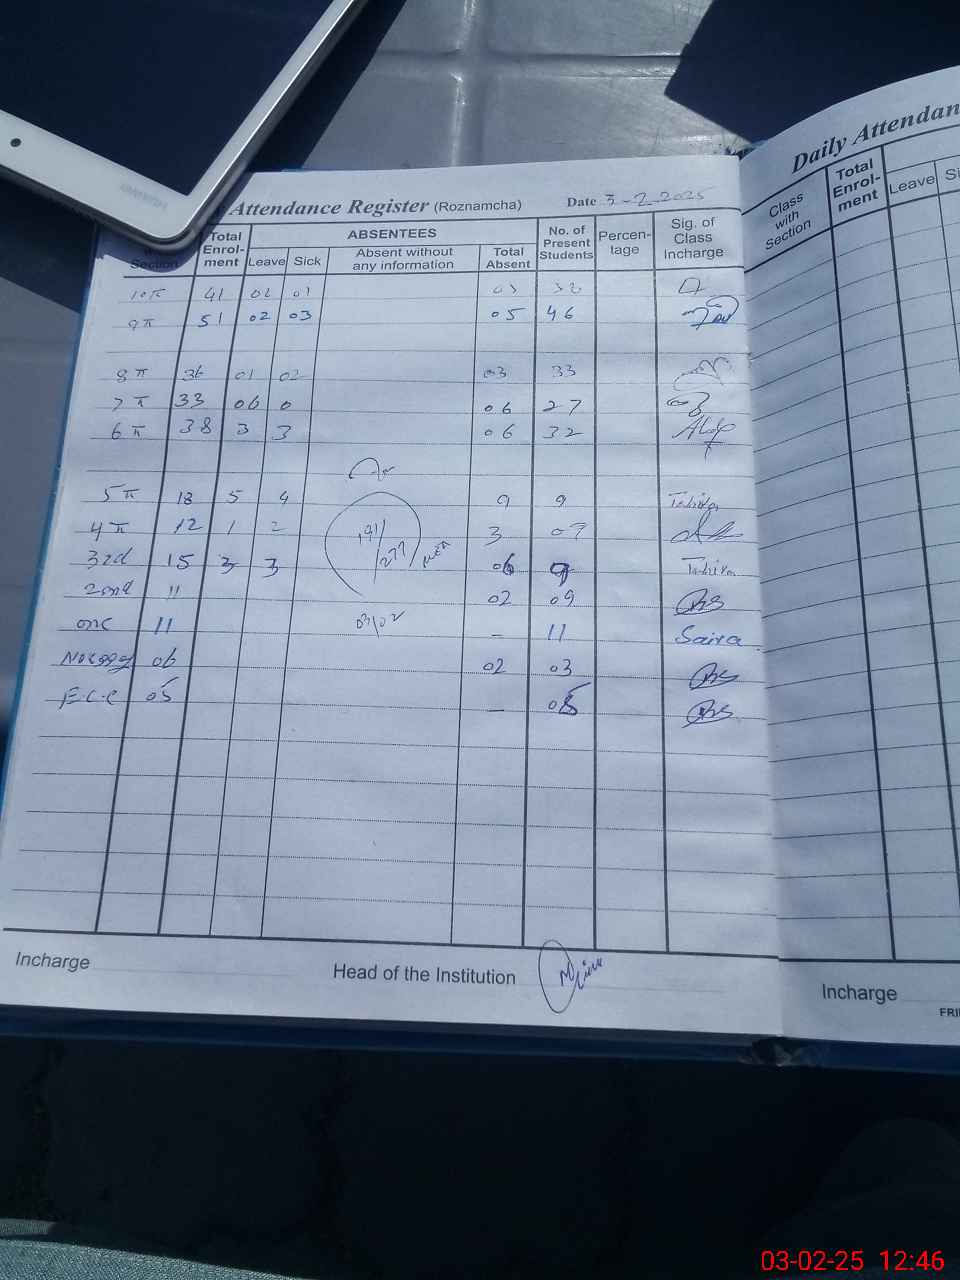 HUAWEI
Attendance Register (Roznamcha) Date 3-2-2025
Section
Total Enrol- ment
ABSENTEES
Leave Sick Absent without any information Total Absent
No. of Present Students
Percen- tage
Sig. of Class Incharge
10 41 02 01 03 38
9 51 02 03 05 46
8 36 01 02 03 33
7 33 06 0 06 27
6 38 3 3 06 32
5 18 5 4 9 9 Tahira
4 12 1 2 3 09
3rd 15 3 3 06 9 Tahira
2ond 11 02 09
one 11 - 11 Saira
06 02 03
E.C.E 05 - 05
191/277
03/02
Incharge
Head of the Institution
Daily Attendan
Class with Section
Total Enrol- ment
Leave Si
Incharge
FRI
03-02-25 12:46